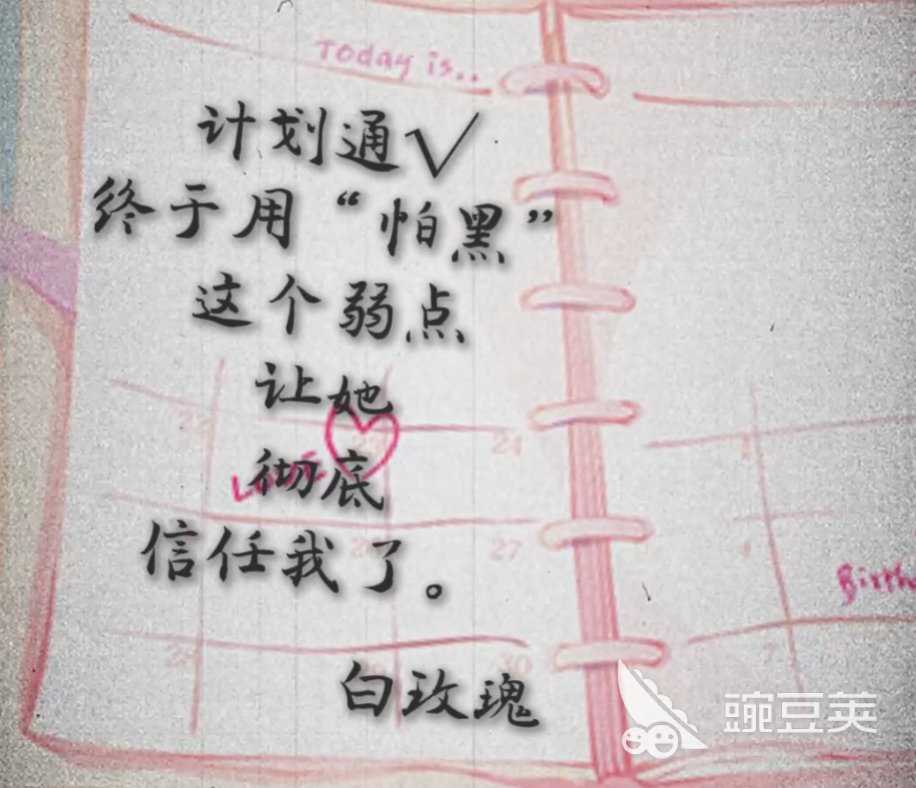 Today is..
计划通√
终于用“怕黑”
这个弱点
让她
彻底
LOVE
信任我了。
白玫瑰
24
27
30
Birth
7
豌豆荚